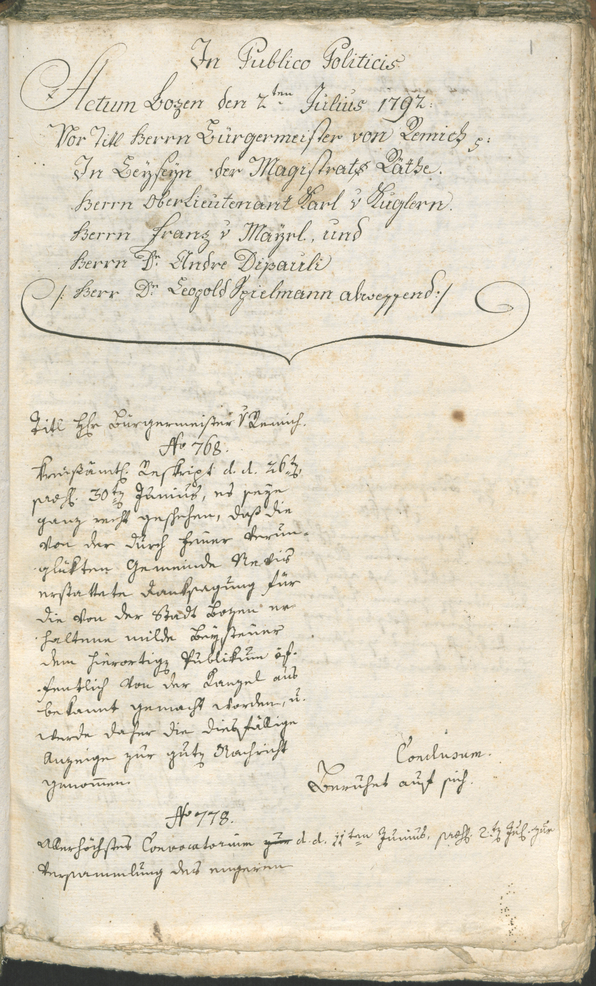 In Publico Politicis
Actum Bozen den 2ten Julius 1792.
Vor Titl Herrn Bürgermeister von Remich
In Beyseyn der Magistrats Räthe.
Herrn Oberlieutenant Karl v Kuglern.
Herrn Franz v Mayrl, und
Herrn Dr. Andre Dipauli
/: Herr Dr. Leopold Spielmann abwesend :/
Titl Hr Bürgermeister v Remich.
No 768.
Kreisämtl. Reskript d. d. 26t
praes. 30t Junius, es seye
ganz recht geschehen, daß die
von der durch Feuer verun-
glükten Gemeinde Nevis
erstattete Danksagung für
die von der Stadt Bozen er
haltene milde Beysteuer
dem hierortig Publikum öf-
fentlich von der Kanzel aus
bekannt gemacht worden, u.
werde daher die diesfällige
Anzeige zur gute Nachricht
genommen.
Conclusum.
Beruhet auf sich.
No 778.
Allerhöchstes Convocatorium zur d. d. 11ten Junius, praes. 2t Jul. zur
Versammlung des engeren